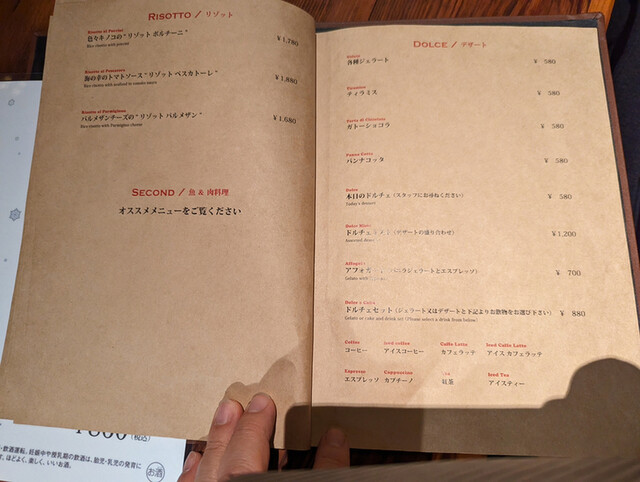 RISOTTO / リゾット
Risotto ai Porcini
色々キノコの"リゾット ポルチーニ" ¥1,780
Rice risotto with porcini
Risotto ai Pescatora
海の幸のトマトソース"リゾット ペスカトーレ" ¥1,880
Rice risotto with seafood in tomato sauce
Risotto al Parmigiano
パルメザンチーズの"リゾット パルメザン" ¥1,680
Rice risotto with Parmigiano cheese
SECOND / 魚 & 肉料理
オススメメニューをご覧ください
DOLCE / デザート
Gelato
各種ジェラート ¥ 580
Tiramisu
ティラミス ¥ 580
Torta di Cioccolato
ガトーショコラ ¥ 580
Panna Cotta
パンナコッタ ¥ 580
Dolce
本日のドルチェ (スタッフにお尋ねください) ¥ 580
Today's dessert
Dolce Misto
ドルチェ (デザートの盛り合わせ) ¥1,200
Assorted
Affogato
アフォガ バニラジェラートとエスプレッソ) ¥ 700
Gelato with
ドルチェセット (ジェラート又はデザートと下記よりお飲物をお選び下さい) ¥ 880
Gelato or cake and drink set (Please select a drink from below)
Coffee Iced coffee Caffe Latte Iced Caffe Latte
コーヒー アイスコーヒー カフェラッテ アイス カフェラッテ
Espresso Cappuccino Tea Iced Tea
エスプレッソ カプチーノ 紅茶 アイスティー
(税込)
飲酒運転、妊娠中や授乳期の飲酒は、胎児・乳児の発育に
す。ほどよく、楽しく、いいお酒。
お酒